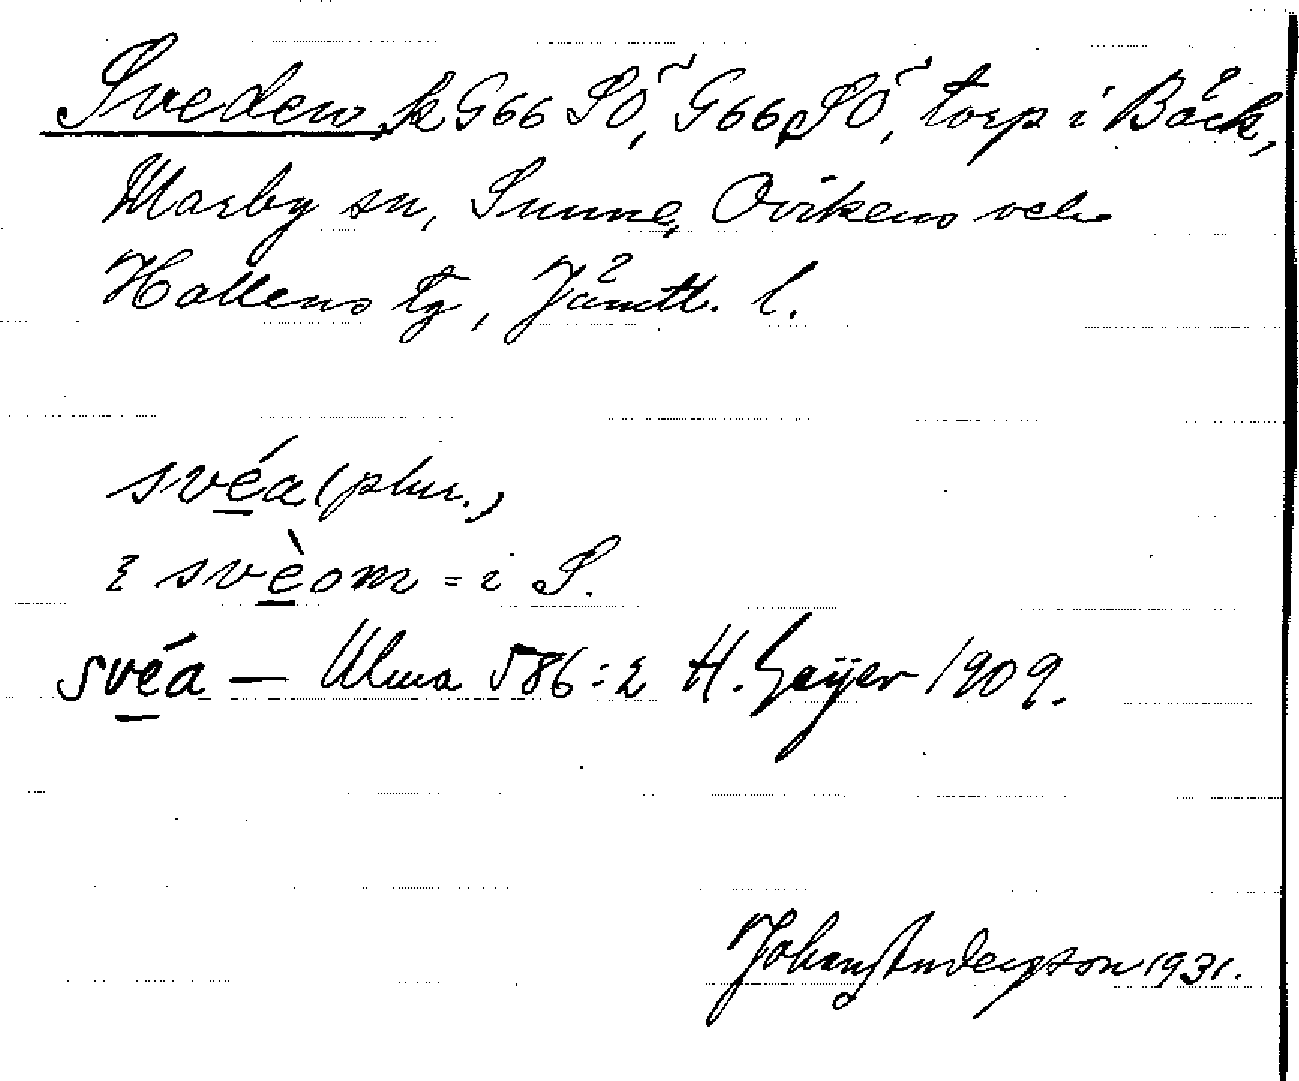 Sveden, k G66 SÖ, G66, SÖ, torp i Bäck,
Marby sn, Sunne, Ovikens och
Hallens tg, Jämtl. l.
svéa (plur.)
svèom = i S.
svéa — Ulma 586:2 H. Geijer 1909.
Johan Anderson 1931.